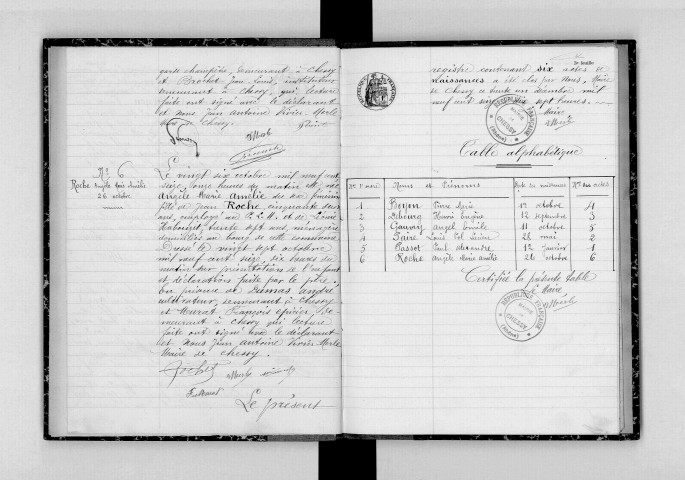 garde champêtre, demeurant à Chessy
et Brochet Jean Louis, instituteur
demeurant à Chessy, qui, lecture
faite ont signé avec le déclarant
et Nous Jean Antoine Vivin Merle
Maire de Chessy.
N° 6
Roche Angèle Marie Amélie
26 octobre
Le vingt six octobre mil neuf cent
seize, onze heures du matin est née
Angèle Marie Amélie du sexe féminin
fille de Jean Roche, cinquante deux
ans, employé au P.L.M. et de Louise
trente sept ans, ménagère
domiciliés au bourg de cette commune
Dressé le vingt sept octobre
mil neuf cent seize, six heures du
matin sur présentation de l'enfant
et déclaration faite par le père.
En présence de Dumas André
cultivateur, demeurant à Chessy
et Murat François épicier, de-
meurant à Chessy qui lecture
faite ont signé avec le déclarant
et Nous Jean Antoine Vivin Merle
Maire de Chessy.
Roche
Merle
F. Murat
Le présent
registre contenant six actes de
Naissances a été clos par Nous, Maire
de Chessy ce trente un décembre mil
neuf cent seize sept heures.
Le Maire
Merle
RÉPUBLIQUE FRANÇAISE
CHESSY
(Rhône)
Table alphabétique
Nos d'ordre Noms et Prénoms Date de naissance Nos des actes
1 octobre 4
2 Eugène 12 septembre 3
3 11 octobre 5
4 Louis 28 mai 2
5 Passot Paul Alexandre 12 Janvier 1
6 Roche Angèle Marie Amélie 26 octobre 6
Certifiée la présente table
Le Maire
Merle
RÉPUBLIQUE FRANÇAISE
CHESSY
(Rhône)